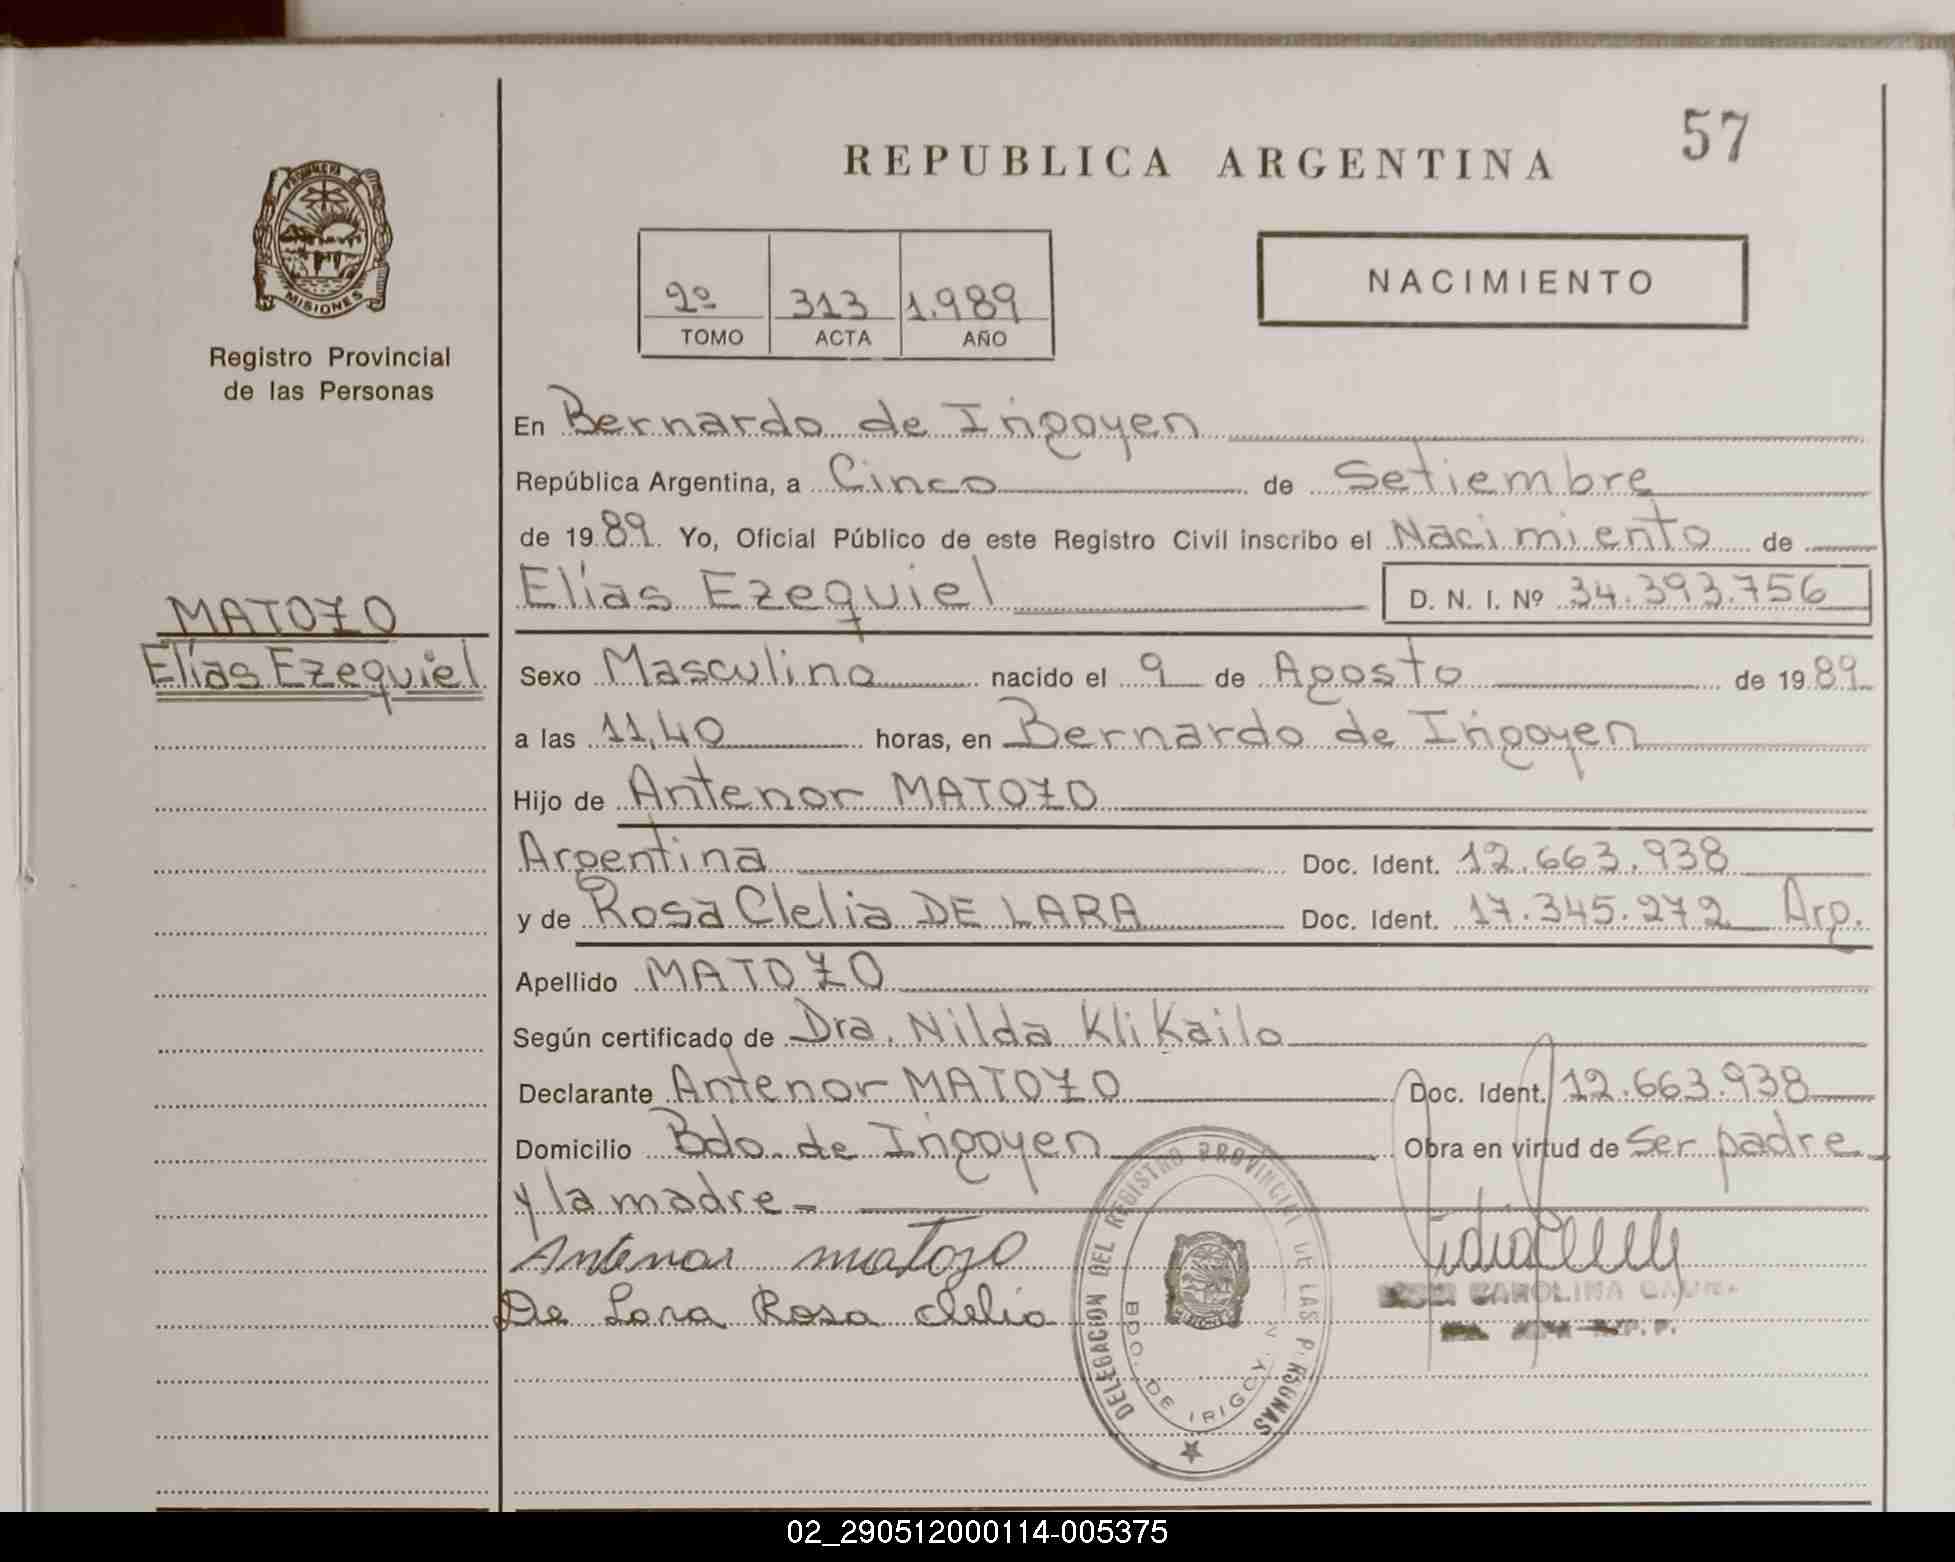 57
REPUBLICA ARGENTINA
PROVINCIA DE
MISIONES
Registro Provincial
de las Personas
2º 313 1.989
TOMO ACTA AÑO
NACIMIENTO
En Bernardo de Irigoyen
República Argentina, a Cinco de Setiembre
de 1989 Yo, Oficial Público de este Registro Civil inscribo el Nacimiento de
Elías Ezequiel D. N. I. Nº 34.393.756
MATOZO
Elías Ezequiel
Sexo Masculino nacido el 9 de Agosto de 1989
a las 11,40 horas, en Bernardo de Irigoyen
Hijo de Antenor MATOZO
Argentina Doc. Ident. 12.663.938
y de Rosa Clelia DE LARA Doc. Ident. 17.345.272 Arg.
Apellido MATOZO
Según certificado de Dra. Nilda KliKailo
Declarante Antenor MATOZO Doc. Ident. 12.663.938
Domicilio Bdo. de Irigoyen Obra en virtud de Ser padre
y la madre -
Antenor matozo
De Lara Rosa clelia
DELEGACION DEL REGISTRO PROVINCIAL DE LAS PERSONAS
BDO. DE IRIGOYEN
CAROLINA
02_290512000114-005375